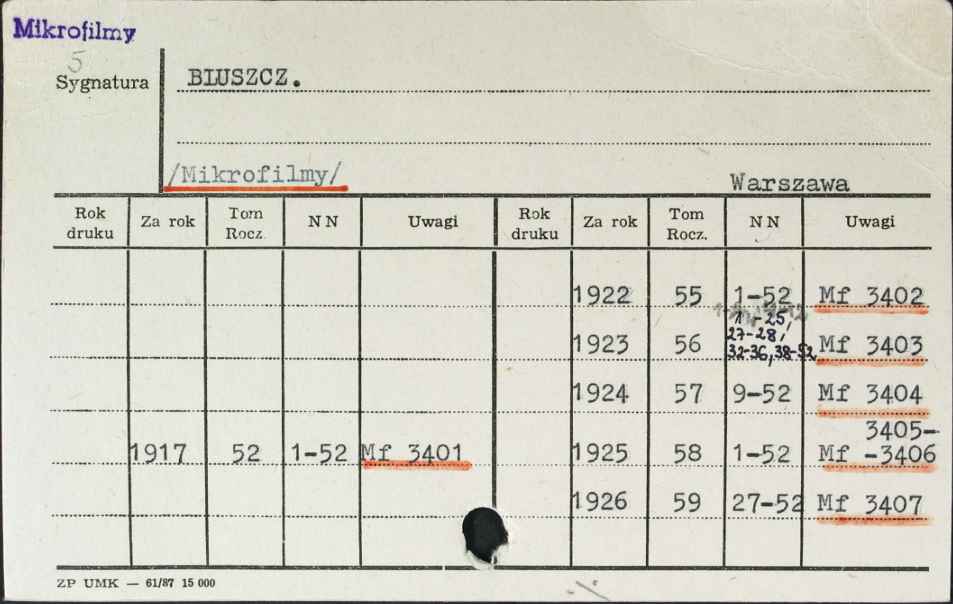 Mikrofilmy
5
Sygnatura BLUSZCZ.
/Mikrofilmy/ Warszawa
Rok druku Za rok Tom Rocz. N N Uwagi Rok druku Za rok Tom Rocz. N N Uwagi
1922 55 1-52 Mf 3402
1923 56 1-25, 27-28, 32-36, 38-52 Mf 3403
1924 57 9-52 Mf 3404
1917 52 1-52 Mf 3401 1925 58 1-52 Mf 3405--3406
1926 59 27-52 Mf 3407
ZP UMK — 61/87 15 000